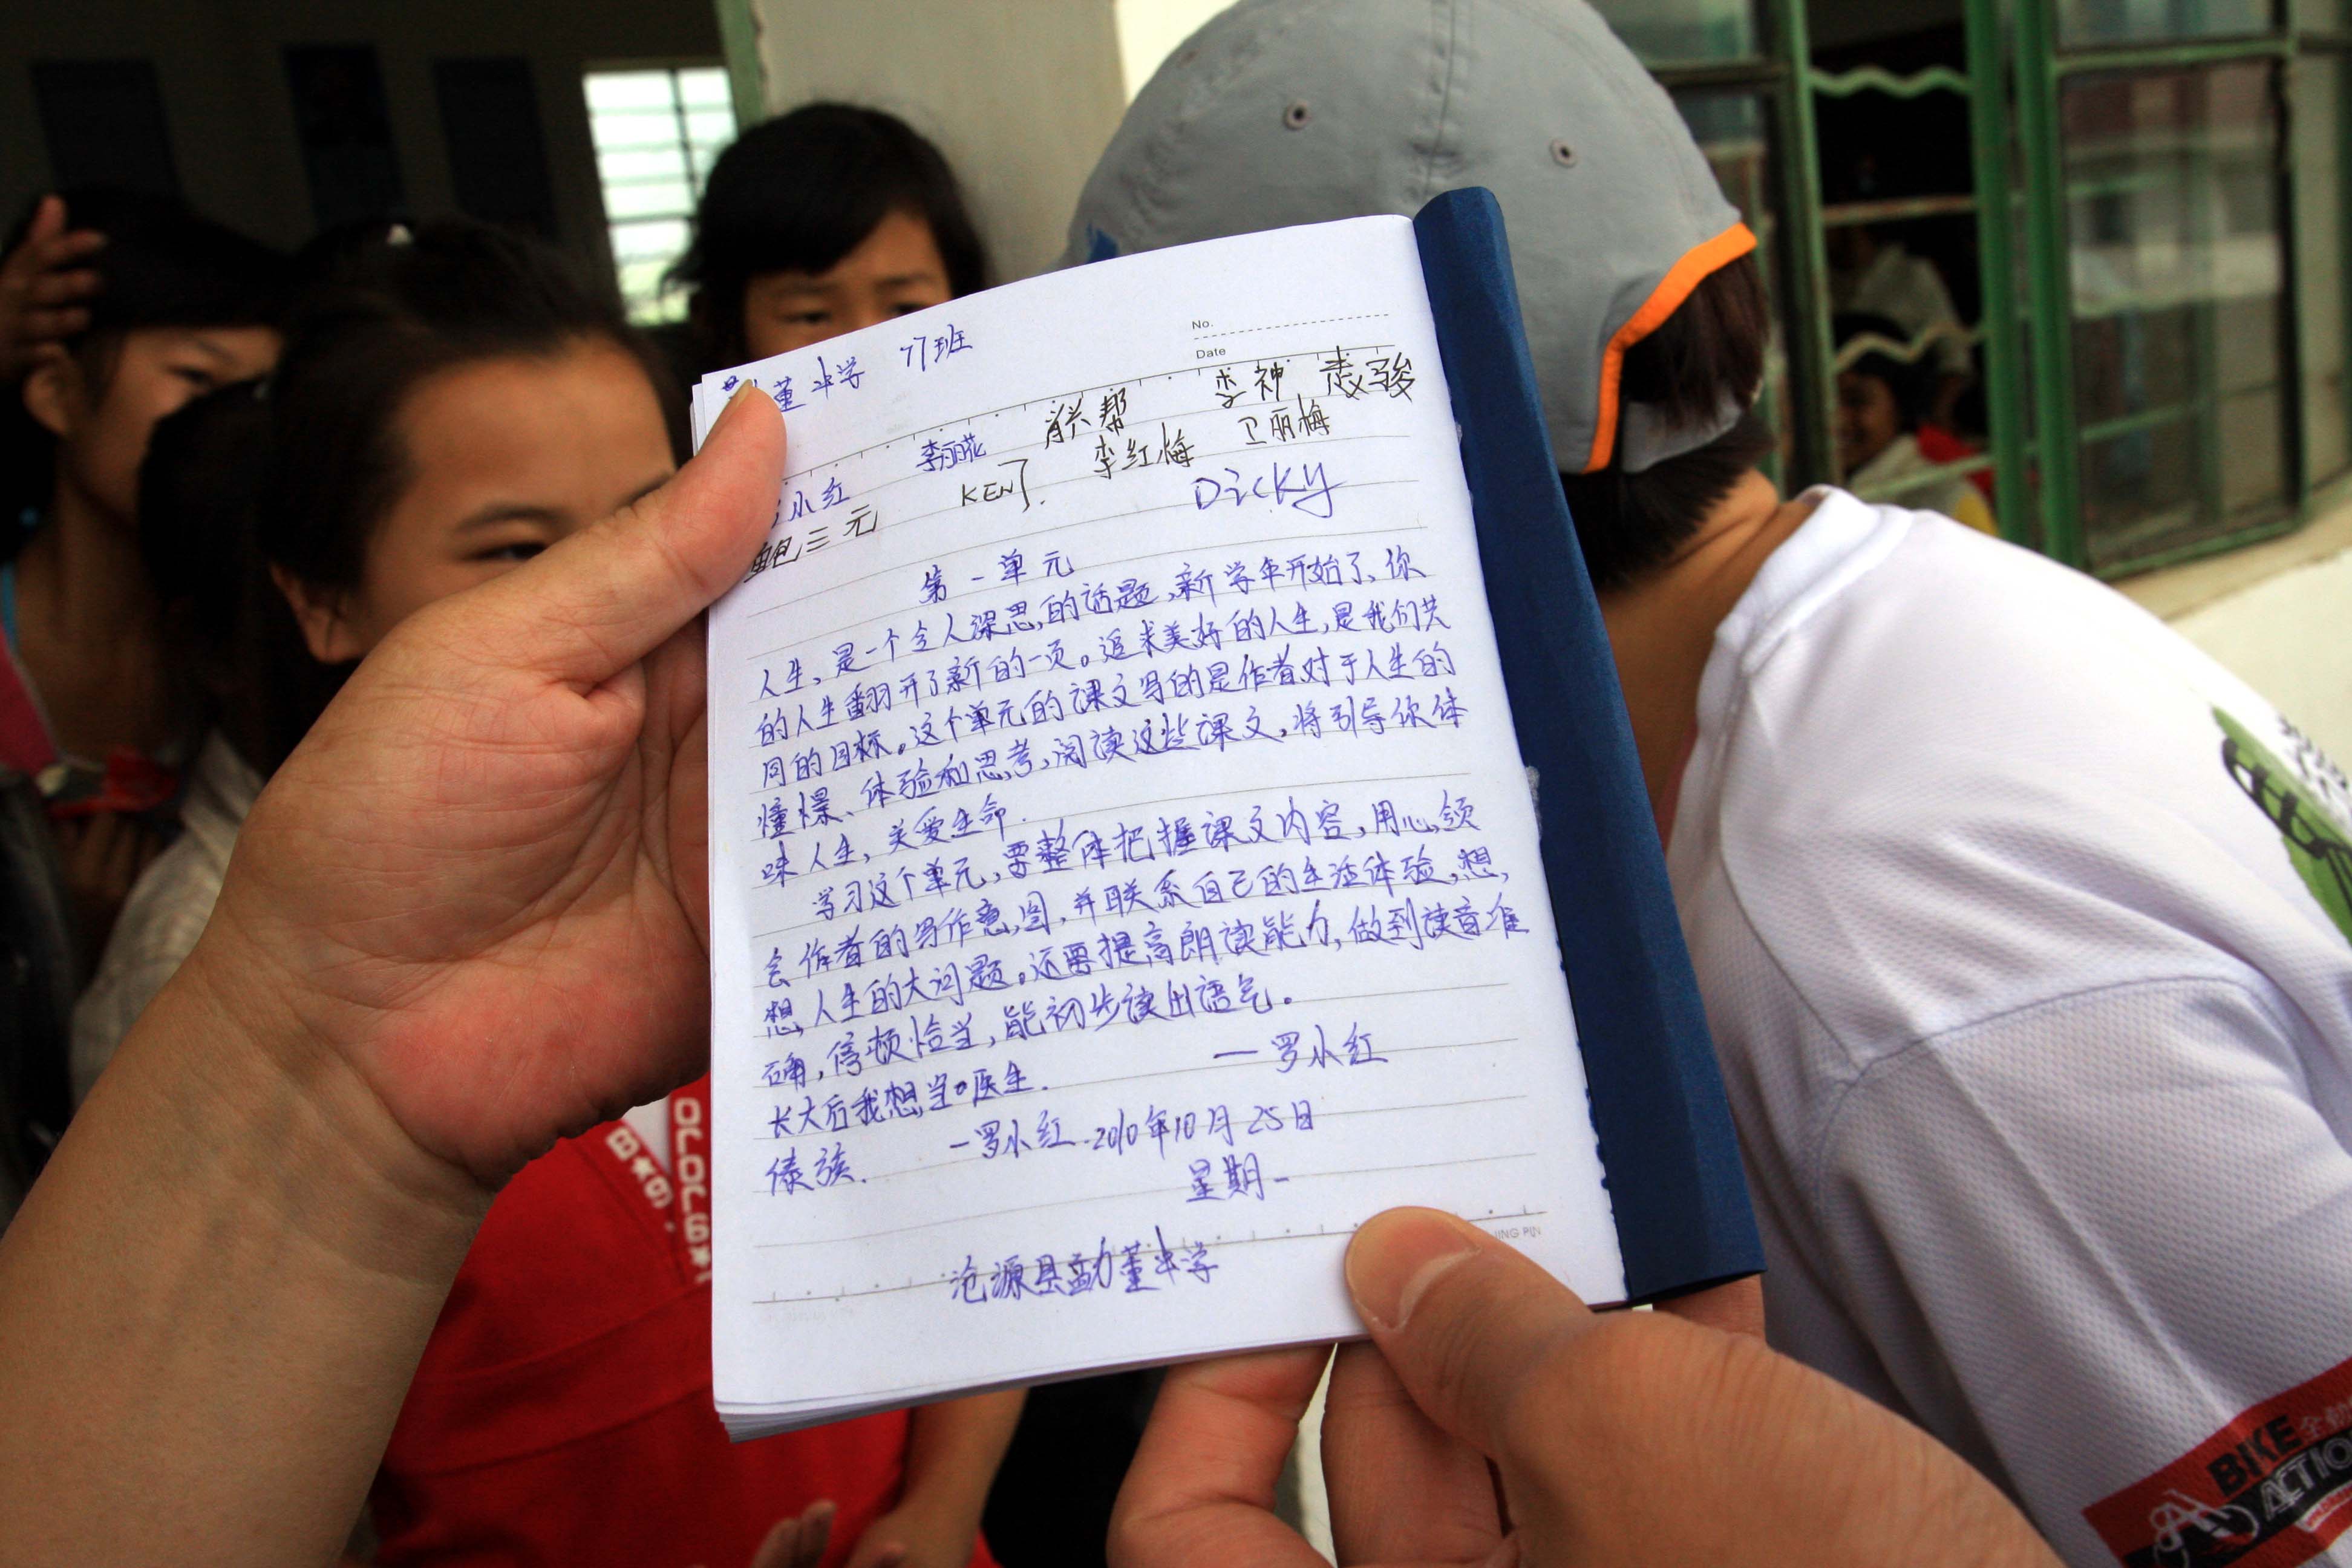 董中学 77班
No.
Date
李神 志骏
肖兴帮
李丽花 李红梅 卫丽梅
小红 KEN Dicky
鲍三元
第一单元
人生,是一个令人深思的话题,新学年开始了、你
的人生翻开了新的一页。追求美好的人生,是我们共
同的目标。这个单元的课文写的是作者对于人生的
憧憬、体验和思考,阅读这些课文,将引导你体
味人生,关爱生命.
学习这个单元,要整体把握课文内容,用心领
会作者的写作意图,并联系自己的生活体验,想,
想,人生的大问题。还要提高朗读能力,做到读音准
确,停顿恰当,能初步读出语气。
—罗小红
长大后我想当医生.
傣族. —罗小红.2010年10月25日
星期一
沧源县勐董中学
BIKE
ACTIO